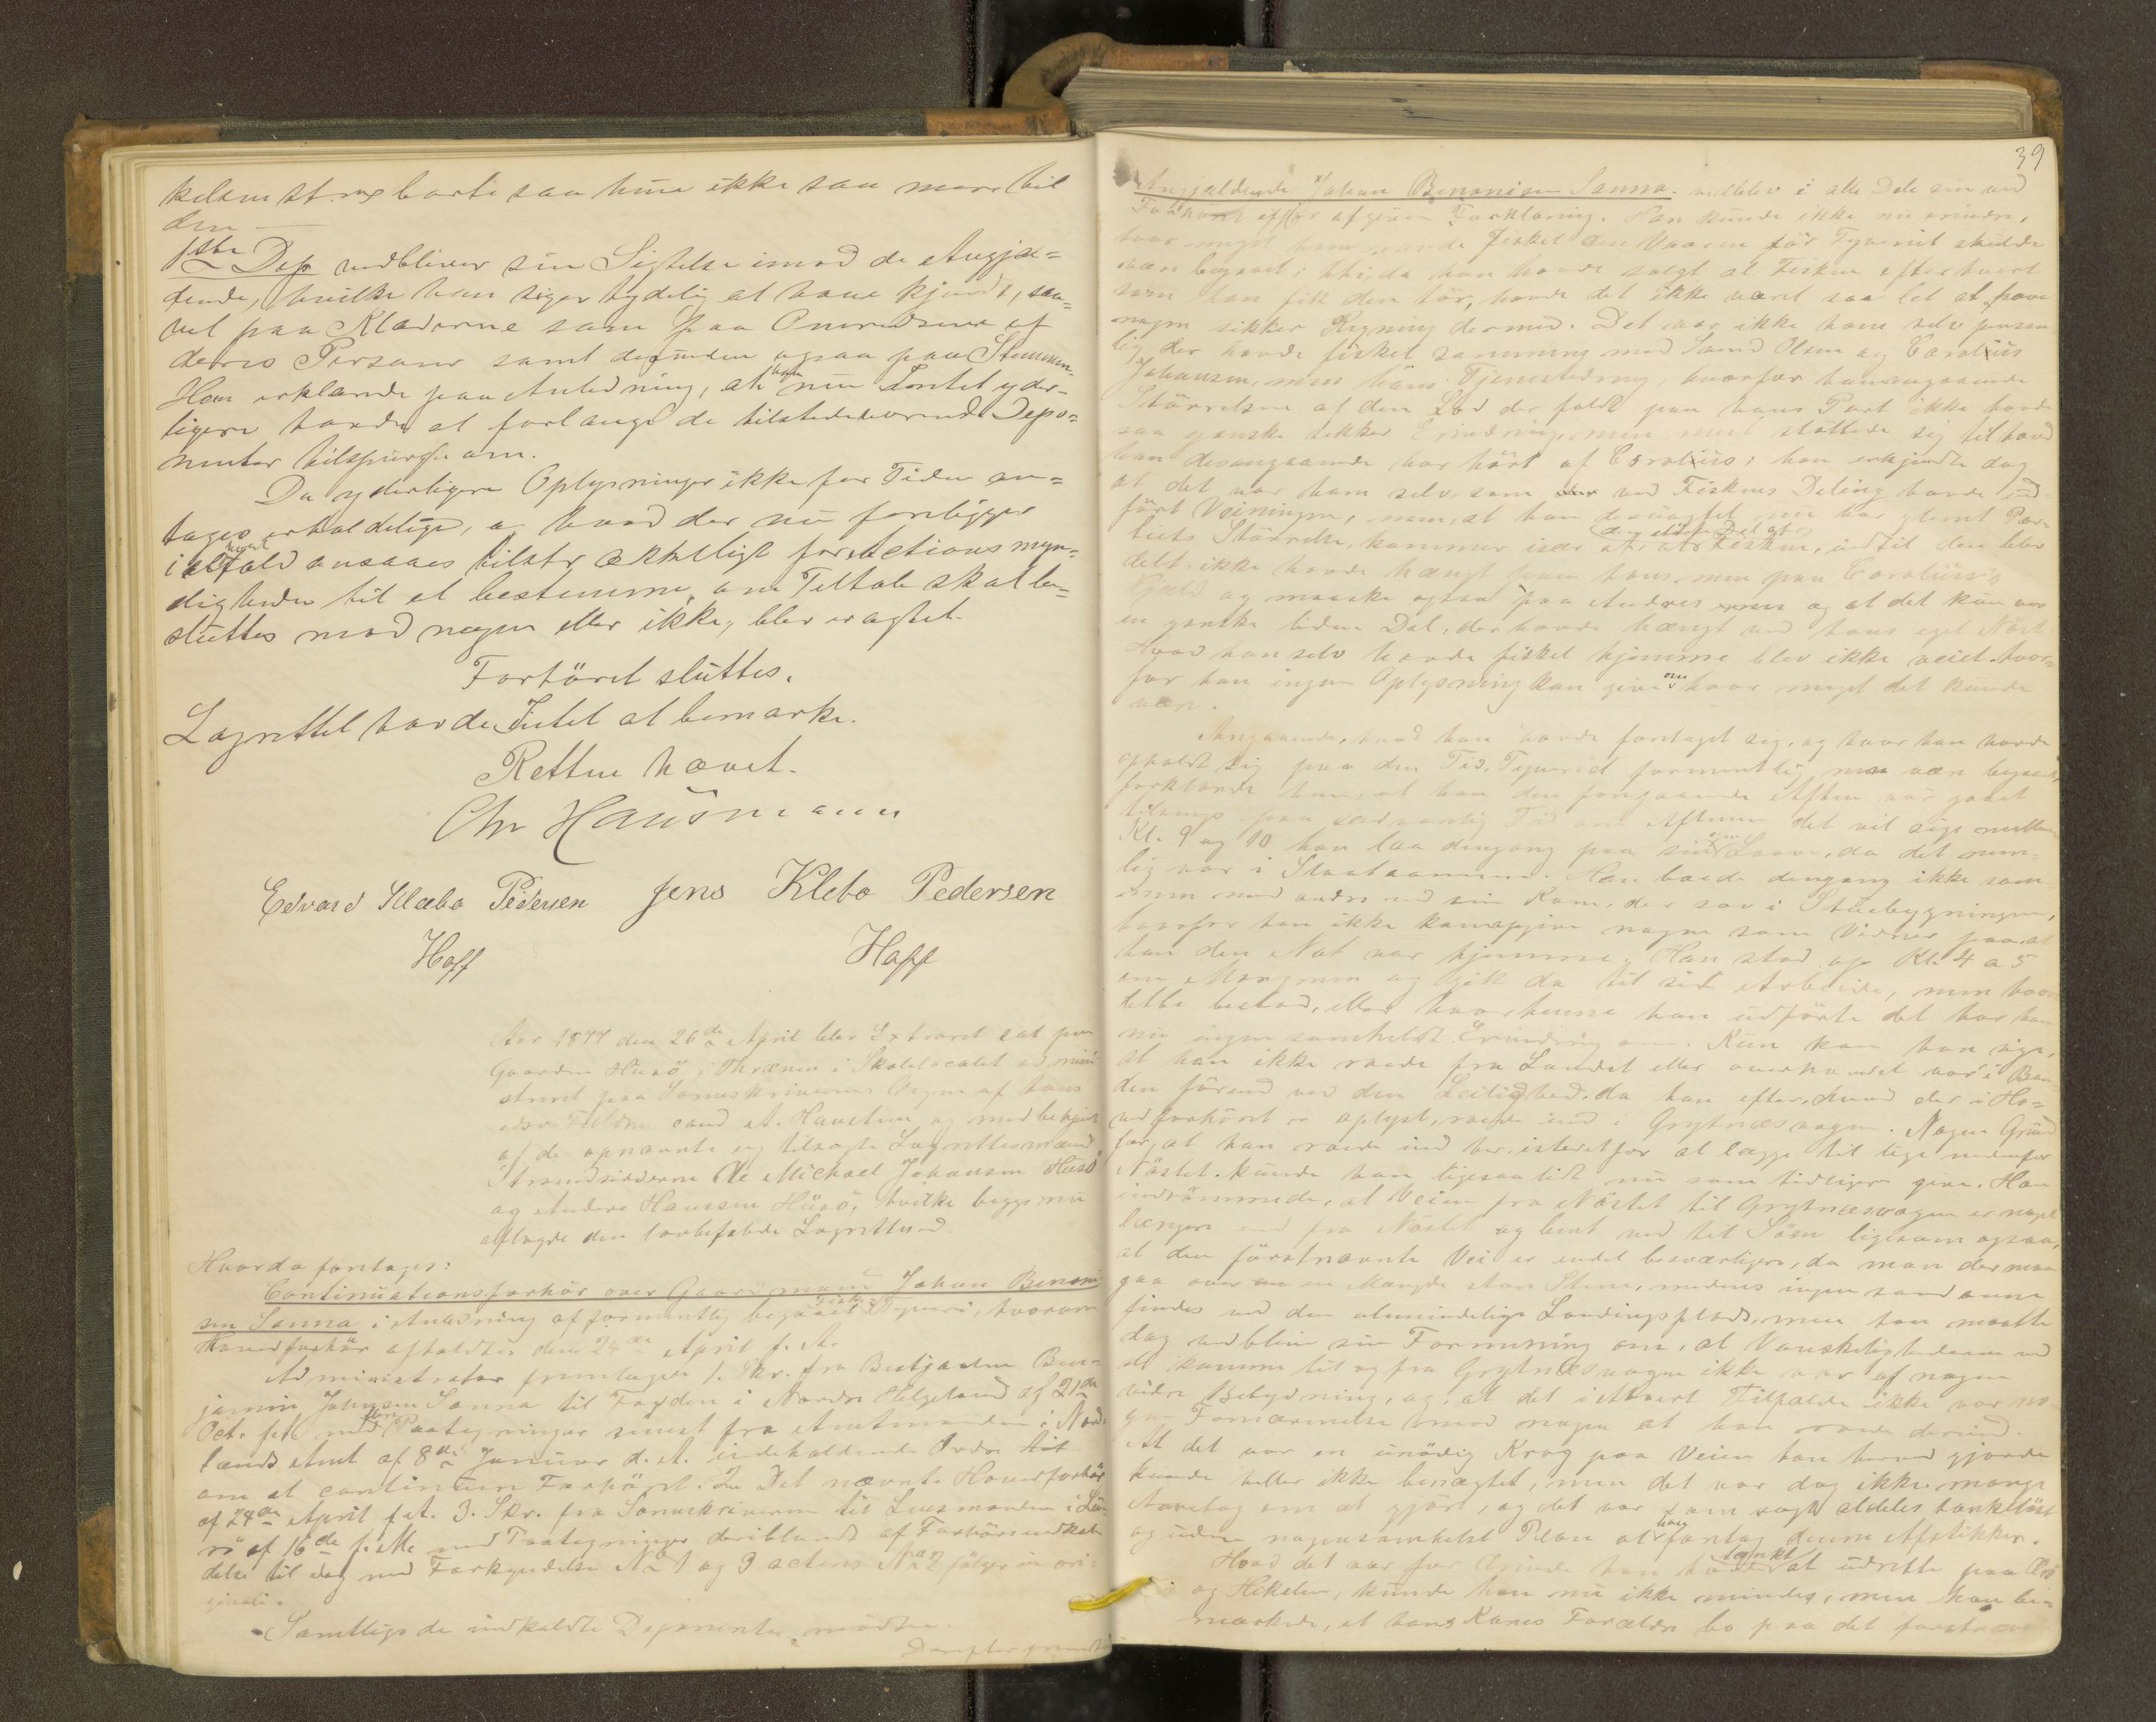 kelsen strax borte saa hun ikke saa mere til
den —
1ste Dep vedbliver sin Sigtelse imod de Angjæ=
dende, hvilke han siger tydelig at have kjendt, saa=
vel paa Klæderne som paa Omridsene af
deres Personer samt desuden ogsaa paa Stemmen.
Han erklærede paa Anledning, at han nu Intet yder=
ligere havde at forlange de tilstedeværende Depo=
nenter tilspurgte om.
Da yderligere Oplysninger ikke for Tiden an=
tages erholdelige, og hvad der nu foreligger
i alfald ansaaes tilstrækkeligt for Actionsmyn=
digheden til at bestemme, om Tiltale skal be=
sluttes mod nogen eller ikke, blev eragtet.
Forhöret sluttes.
Lagrettet havde Intet at bemærke.
Retten hævet.
Chr Hausmann
Edvard Klæbo Pedersen Jens Klebo Pedersen
Hoff Hoff
Aar 1877 den 26de April blev Extraret sat paa
Gaarden Husö i Thrænen i Skolelocalet admini
streret paa Sorenskriverens Vegne af hans
edsv. Fuldm. cand A. Haustein og medbetjent
af de opnævnte og tilsagte Lagrettesmænd
Strandsidderne Ole Michael Johansen Husö
og Anders Hanssen Husö, hvilke begge nu
aflagde den lovbefalede Lagretteed.
Hvorda foretages:
Continuationsforhör over Gaardmand Johan Benoni
sen Sanna i Anledning af formentlig begaaet Fiske Tyveri, hvorom
Hovedforhör afholdtes den 24de April f. A.
Administrator fremlagde 1. Skr. fra Bestjaalne Ben=
jamin Johnsen Sanna til Fogden i Nordre Helgeland af 21de
Oct. f. A. med flere Paategninger senest fra Amtmanden i Nord=
lands Amt af 8de Januar d. A. indeholdende Ordre til
om at continuere Forhöret. 2. Det nævnte Hovedforhör
af 24de April f. A. 3. Skr. fra Sorenskriveren til Lensmanden i Lu=
rö af 16de f. M. med Paategninger deriblandt af Forhörsindkal=
delse til idag med Forkyndelse No 1 og 3 acteres No 2 fölger in ori=
ginali.
Samtlige de indkaldte Deponenter mödte.
Derefter fremstod
39
Angjældende Johan Benonisen Sanna. vedblev i alle Dele sin ved
Forhöret afgivne Forklaring. Han kunde ikke nu erindre,
hvor meget han havde fisket den Vaaren för Tyveriet skulde
være begaaet; thi da han havde solgt af Fisken efterhvert
som han fik den tör, havde det ikke været saa let at have
nogen sikker Regning dermed. Det var ikke ham selv person
lig der havde fisket sammen med Sevrid Olsen og Carolius
Johansen, men hans Tjenestedreng, hvorfor han angaaende
Störrelsen af den Lod der faldt paa hans Part ikke havde
saa ganske sikker Erindring, men nu stöttede sig til hvad
han desangaaende har hört af Carolius; han erkjendte dog
at det var ham selv, som ved Fiskens Deling havde ud
fört Veiningen, men, at han desuagtet nu har glemt Par=
tiets Störrelse, kommer især af, at den störste Del af Fisken, indtil den blev
delt ikke havde hængt hos ham men paa Carolius's
Hjeld og maaske ogsaa paa Andres og at det kun var
en ganske liden Del, der havde hængt ved hans eget Nöst.
Hvad han selv havde fisket hjemme blev ikke veiet, hvor=
for han ingen Oplysning kan give om hvor meget det kunde
være.
Angaaende, hvad han havde foretaget sig, og hvor han havde
opholdt sig paa den Tid, Tyveriet formentlig maa være begaaet,
forklarede han, at han den foregaaende Aften var gaaet
tilsengs paa sædvanlig Tid om Aftenen det vil sige mellem
Kl. 9 og 10 han laa dengang paa sin Laave, da det nem=
lig var i Slaataannen. Han havde dengang ikke sam
men med andre end sin Kone, der sov i Stuebygningen,
hvorfor han ikke kan opgive nogen som Vidner paa, at
han den Nat var hjemme. Han stod op Kl. 4 a 5
om Morgenen og gik da til sit Arbeide, men hvori
dette bestod, eller hvorhenne han udförte det har han
nu ingen somhelst Erindring om. Kun kan han sige,
at han ikke roede fra Landet eller overhovedet var i Baa
den förend ved den Leilighed, da han efter, hvad der i Ho=
vedforhöret er oplyst, roede ind i Grytnæsvagen. Nogen Grund
for, at han roede ind der istedetfor at lægge til lige nedenfor
Nöstet, kunde han ligesaalidt nu som tidligere give. Han
indrömmede, at Veien fra Nöstet til Grytnæsvagen er noget
længere end fra Nöstet og bent ned til Söen ligesom ogsaa,
at den förstnævnte Vei er endel besværligere, da man der maa
gaa over en Mængde store Stene, medens ingen saadanne
findes ved den almindelige Landingsplads, men han maatte
dog vedblive sin Formening om, at Vanskelighederne ved
at komme til og fra Grytnæsvagen ikke var af nogen
videre Betydning, og, at det i ethvert Tilfælde ikke var no
gen Fornærmelse imod nogen at han roede derind.
At det var en unödig Krog paa Veien han herved gjorde
kunde heller ikke benægtes, men det var dog ikke mange
Aaretag om at gjöre, og det var som sagt aldeles tanklöst
og uden nogensomhelst Plan at han foretog denne Afstikker.
Hvad det var for Ærinde han havde tænkt at udrette paa
og Hekelen, kunde han nu ikke mindes, men han be=
mærkede, at hans Kones Forældre bo paa det förstnævnte